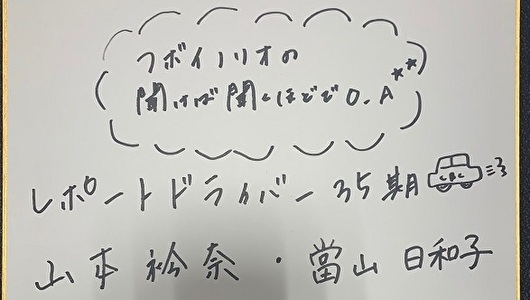 つボイノリオの
聞けば聞くほどで O.A**
レポートドライバー 35期
CBC
山本 衿奈 ・ 當山 日和子